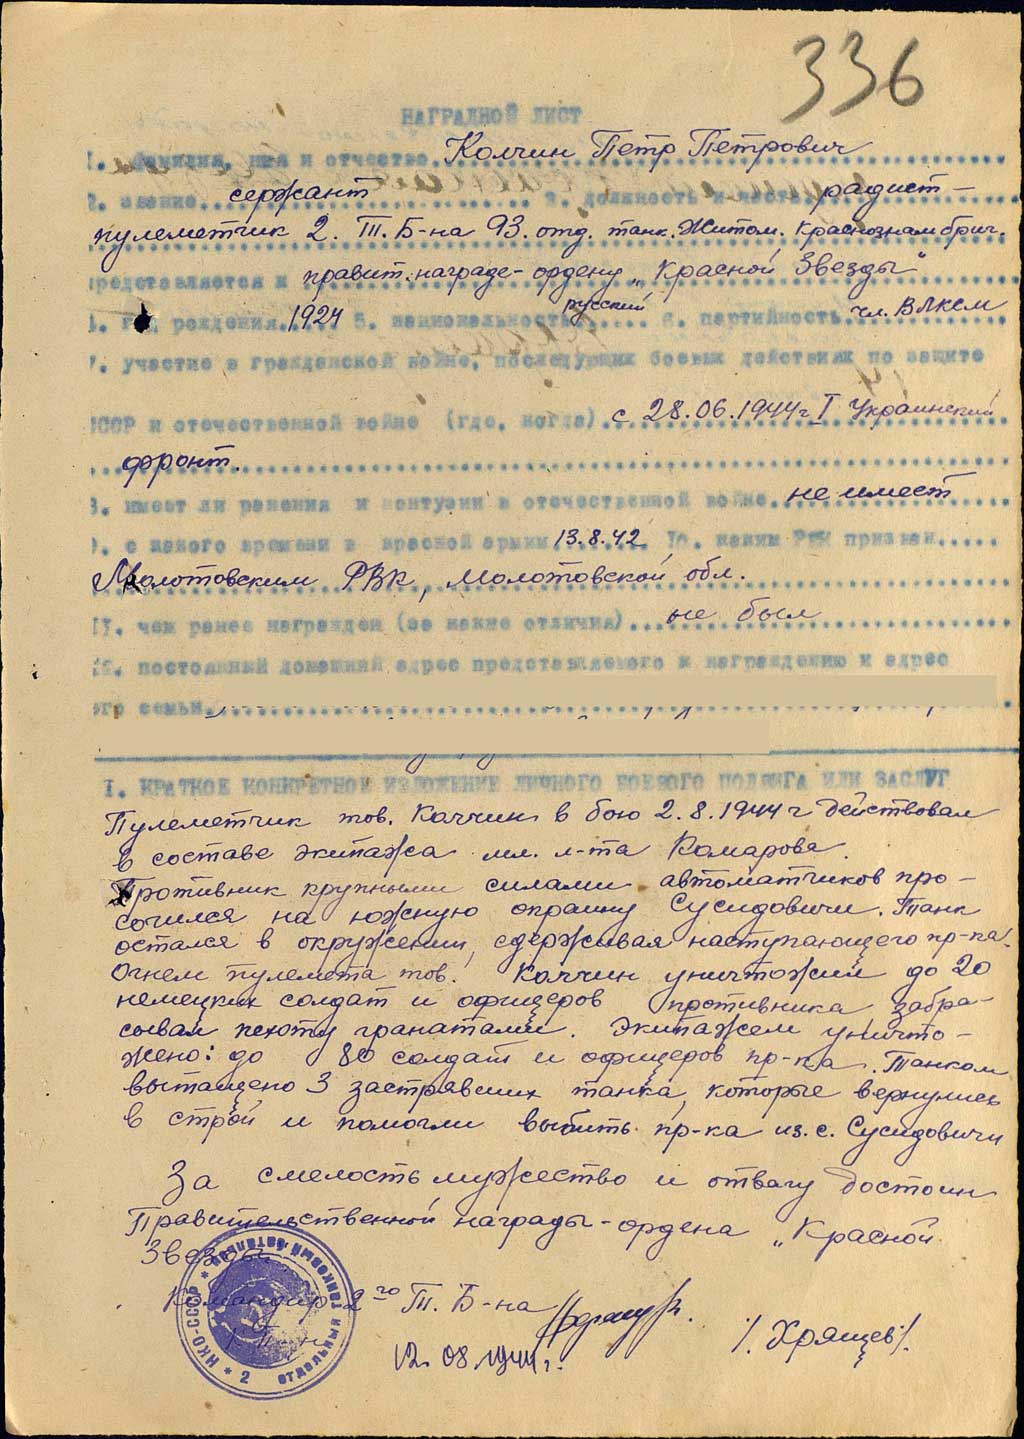 336
НАГРАДНОЙ ЛИСТ
1. Фамилия, имя и отчество Колчин Петр Петрович
2. звание сержант 3. должность и часть радист-
пулеметчик 2. Т.Б-на 93. отд. танк. Житом. Краснознам бриг.
представляется к правит. награде - ордену „Красной Звезды"
4. год рождения 1924 5. национальность русский 6. партийность чл. ВЛКСМ
7. участие в гражданской войне, последующих боевых действиях по защите
СССР и отечественной войне (где, когда) с 28.06.1944 г I Украинский
фронт.
8. имеет ли ранения и контузии в отечественной войне не имеет
9. с какого времени в красной армии 13.8.42 10. каким РВК призван
Молотовским РВК, Молотовской обл.
11. чем ранее награжден (за какие отличия) не был
12. постоянный домашний адрес представляемого к награждению и адрес
его семьи
1. КРАТКОЕ КОНКРЕТНОЕ ИЗЛОЖЕНИЕ ЛИЧНОГО БОЕВОГО ПОДВИГА ИЛИ ЗАСЛУГ
Пулеметчик тов. Каччин в бою 2.8.1944 г действовал
в составе экипажа мл. л-та Комарова.
Противник крупными силами автоматчиков про-
сочился на южную окраину Сусидовичи. Танк
остался в окружении, сдерживая наступающего пр-ка.
Огнем пулемета тов. Каччин уничтожил до 20
немецких солдат и офицеров противника забра-
сывал пехоту гранатами. Экипажем уничто-
жено: до 80 солдат и офицеров пр-ка. Танком
вытащено 3 застрявших танка, которые вернулись
в строй и помогли выбить пр-ка из. с. Сусидовичи
За смелость мужество и отвагу достоин
Правительственной награды - ордена „Красной
Звезды
Командир 2го Т. Б-на /Хрящев/.
12.08.1944 г.
НКО-СССР * 2 отдельный танковый батальон *